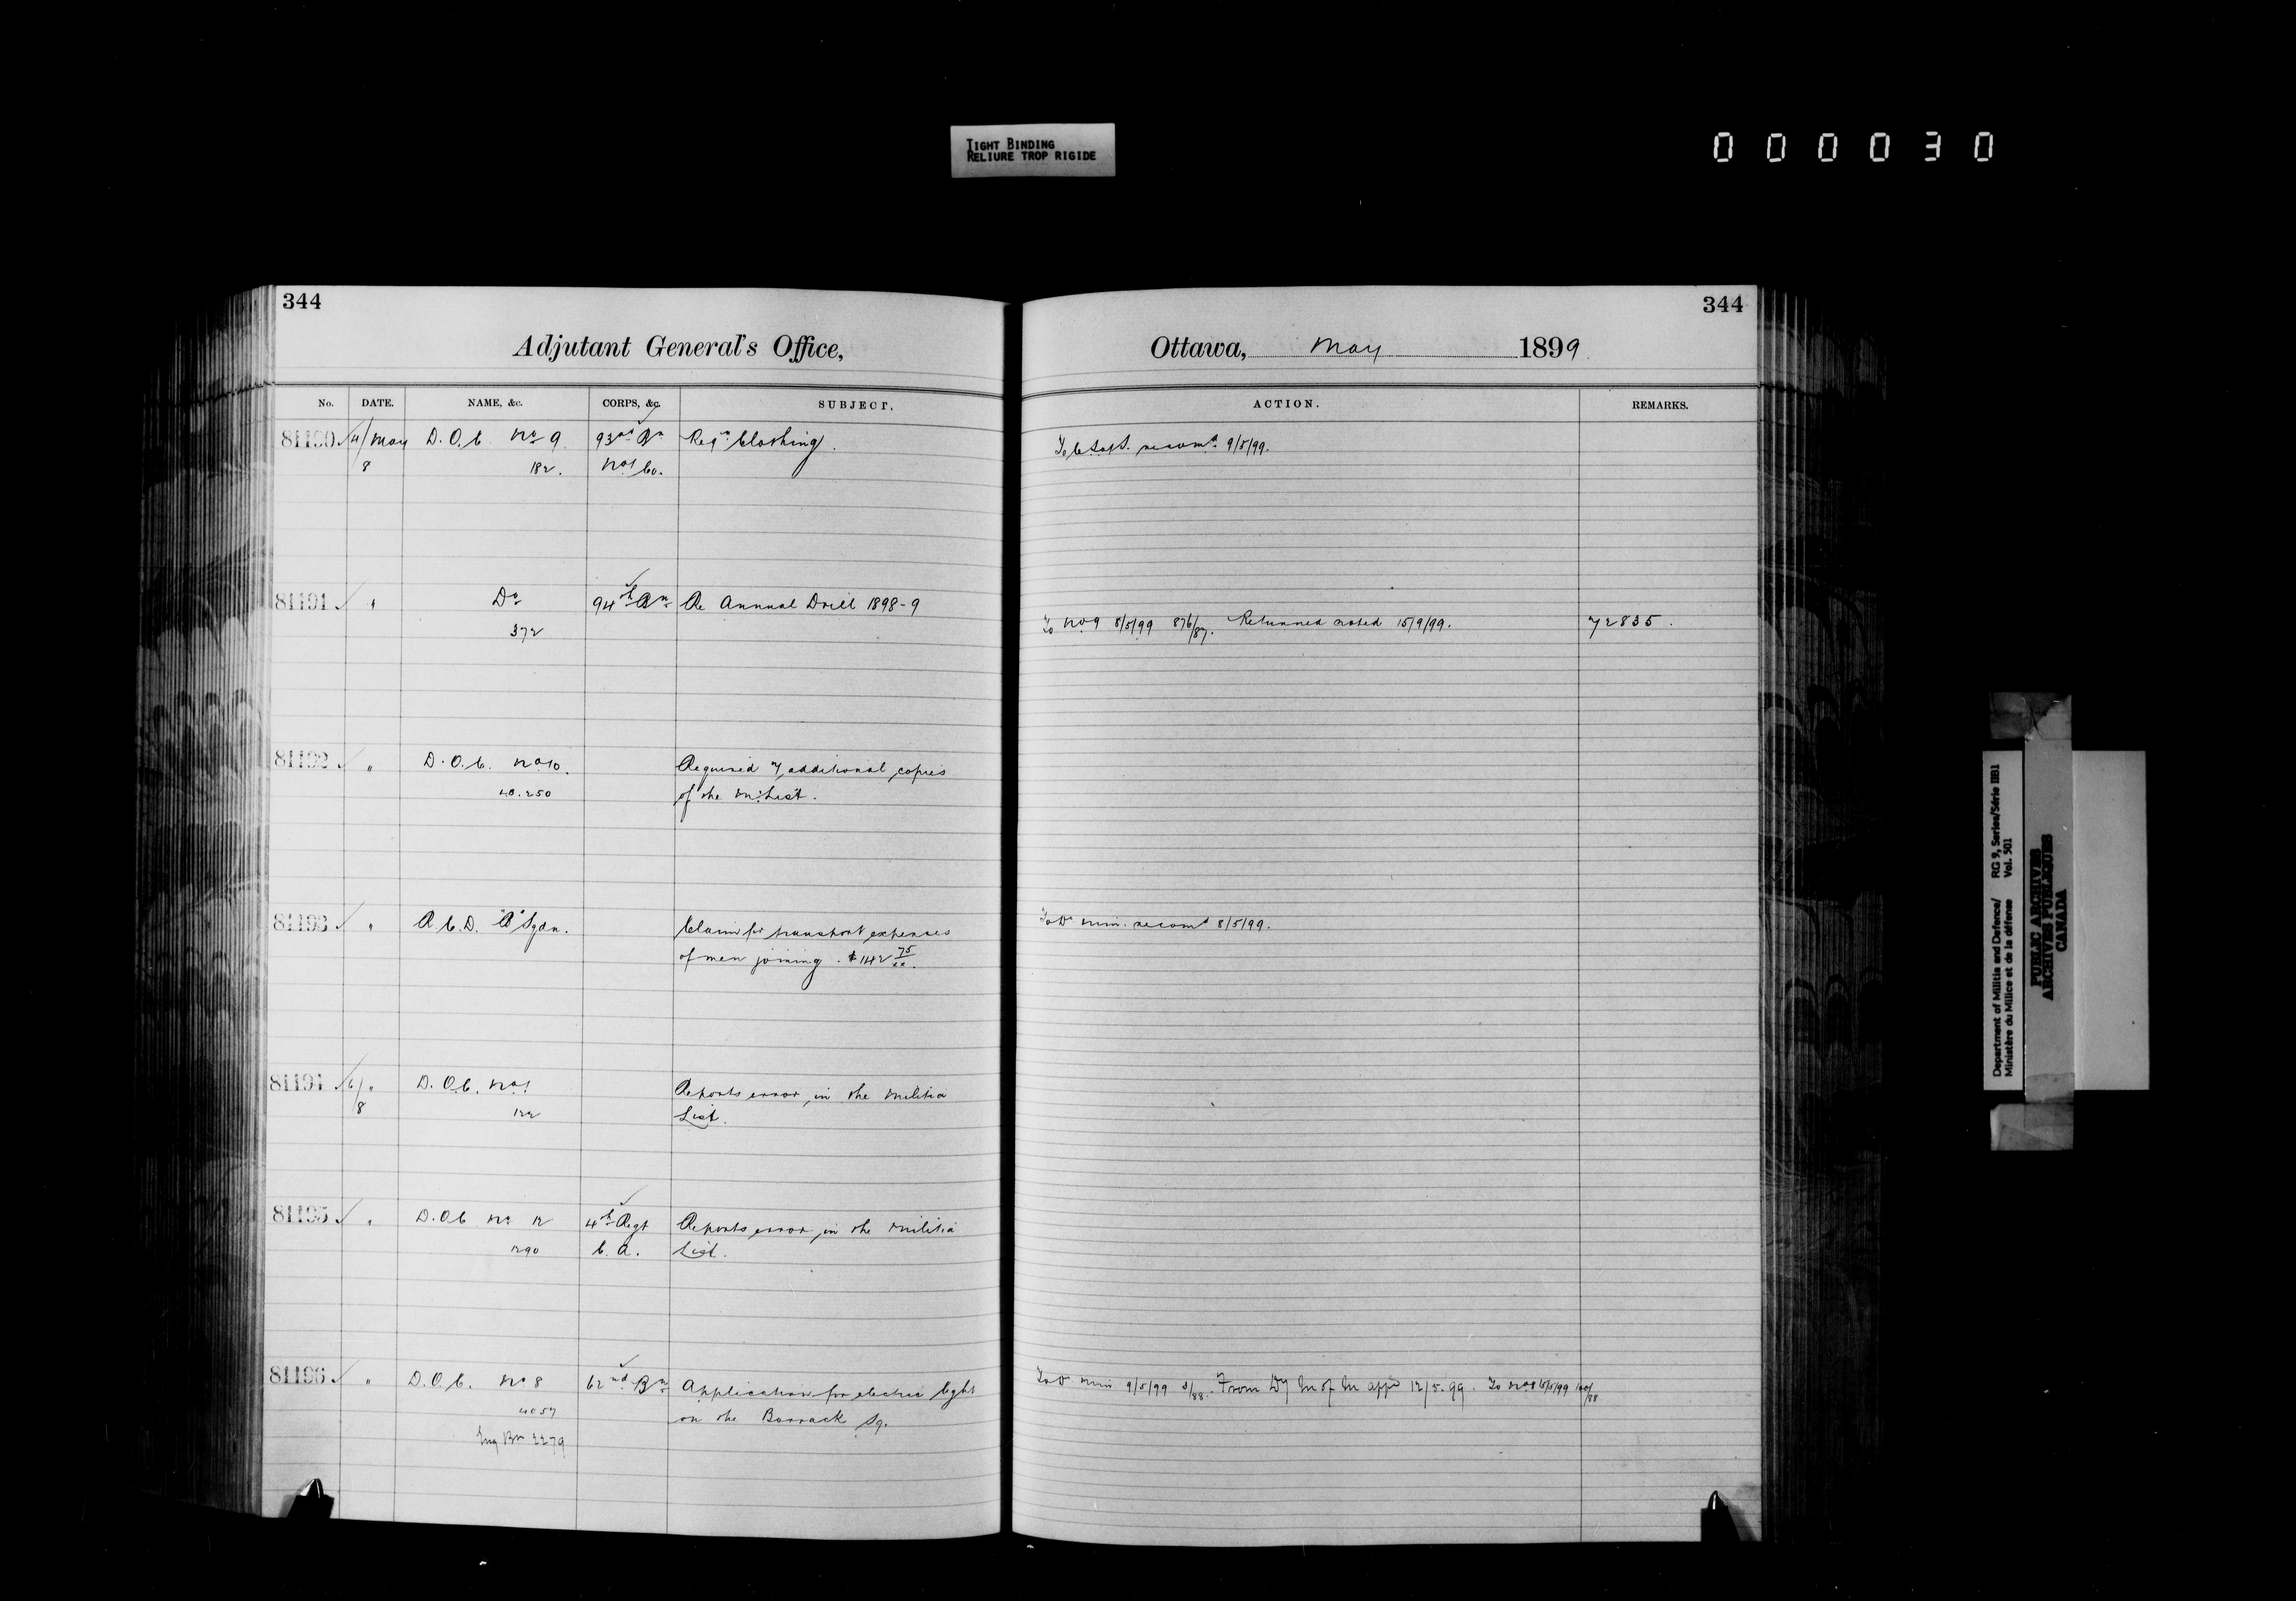 TIGHT BINDING
RELIURE TROP RIGIDE
000030
344
344
Adjutant General's Office,
Ottawa, May 1899
No. DATE. NAME, &c. CORPS, &c. SUBJECT. ACTION. REMARKS.
81190 4/ May D.O.C. No 9 93rd Bn Reqn Clothing.
8 182. No 1 Co. To C Supt. recomd. 9/5/99.
81191 " Do 94th Bn Re Annual Drill 1898-9
372 To No 9 8/5/99 876/87. Returned noted 15/9/99. 72835.
81192 " D.O.C. No 10. Required 7 additional copies
40.250 of the M. List.
81193 " R.C.D. "A" Sqdn. Claim for transport expenses To D min. recomd 8/5/99.
of men joining. $142 75/xx.
81194 6/ " D.O.C. No 1 Reports error, in the Militia
8 122 List.
81195 " D.O.C No 12 4th Regt Reports error, in the Militia
1290 C.A. List.
81196 " D.O.C. No 8 62nd Bn Application for electric light To D min 9/5/99 /88. From Dy M of M appd 12/5.99. To No 8 15/5/99 100/88
4057 on the Barrack Sq.
Eng Br 2279
Department of Militia and Defence/ RG 9, Series/Série IIB1
Ministère du Milice et de la défense Vol. 501
PUBLIC ARCHIVES
ARCHIVES PUBLIQUES
CANADA